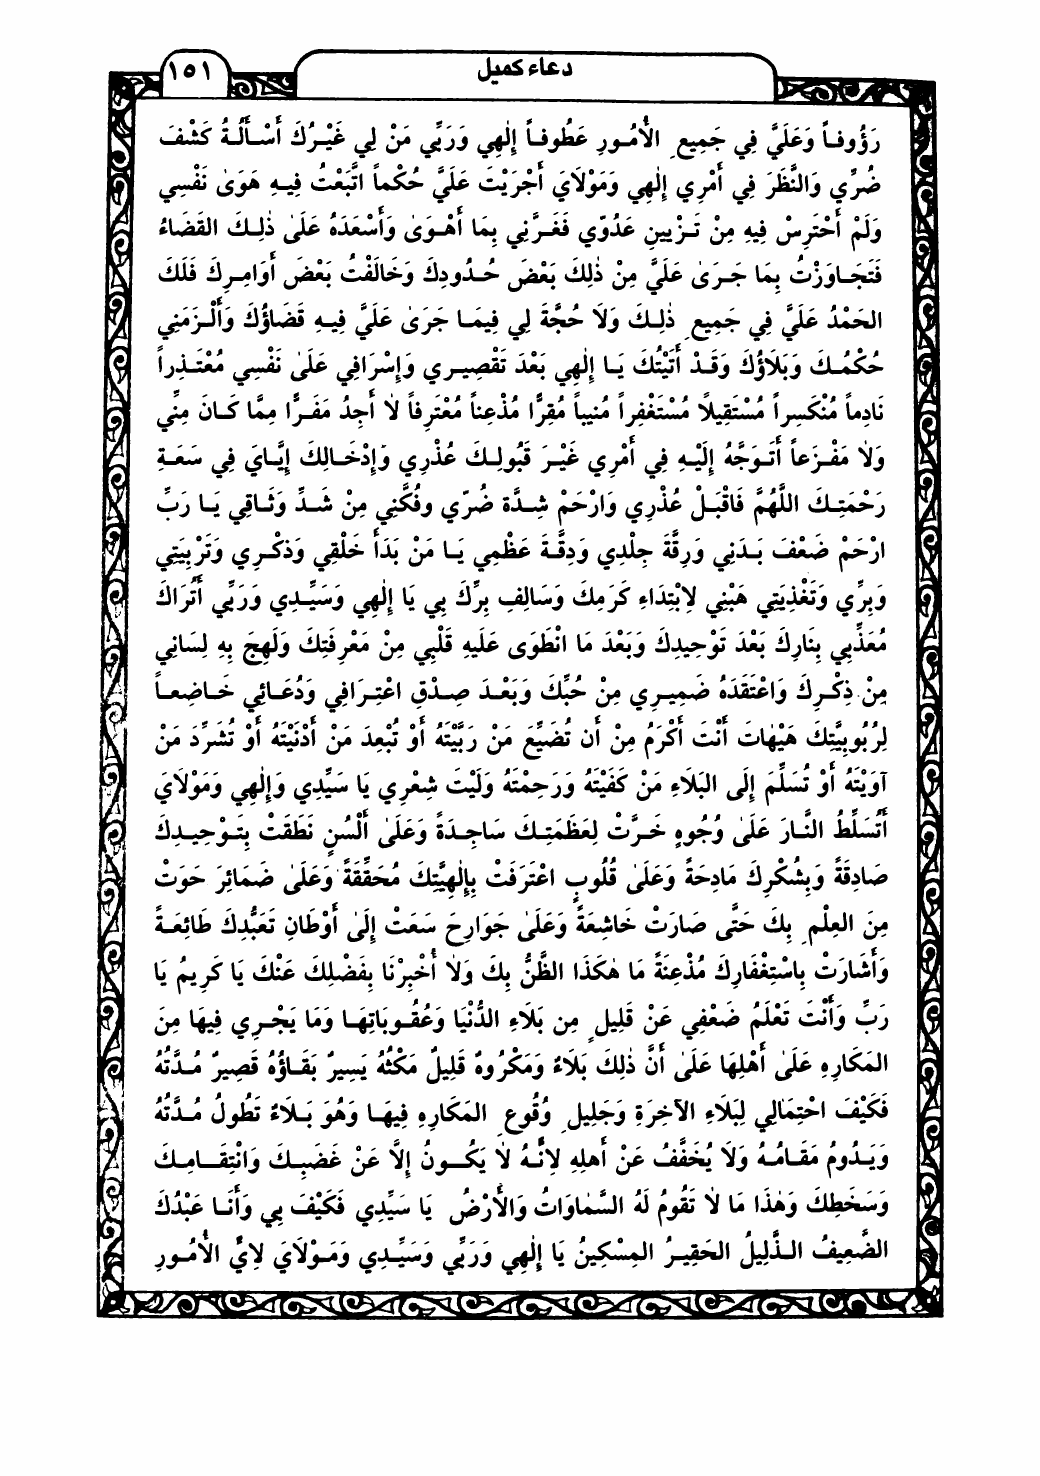 ١٥١
دعاء كميل
رَؤُوفاً وَعَلَيَّ فِي جَمِيعِ الأُمُورِ عَطُوفاً إِلٰهِي وَرَبِّي مَنْ لِي غَيْرُكَ أَسْأَلُهُ كَشْفَ
ضُرِّي وَالنَّظَرَ فِي أَمْرِي إِلٰهِي وَمَوْلَايَ أَجْرَيْتَ عَلَيَّ حُكْماً اتَّبَعْتُ فِيهِ هَوَىٰ نَفْسِي
وَلَمْ أَحْتَرِسْ فِيهِ مِنْ تَزْيِينِ عَدُوِّي فَغَرَّنِي بِمَا أَهْوَىٰ وَأَسْعَدَهُ عَلَىٰ ذٰلِكَ القَضَاءُ
فَتَجَاوَزْتُ بِمَا جَرَىٰ عَلَيَّ مِنْ ذٰلِكَ بَعْضَ حُدُودِكَ وَخَالَفْتُ بَعْضَ أَوَامِرِكَ فَلَكَ
الحَمْدُ عَلَيَّ فِي جَمِيعِ ذٰلِكَ وَلَا حُجَّةَ لِي فِيمَا جَرَىٰ عَلَيَّ فِيهِ قَضَاؤُكَ وَأَلْزَمَنِي
حُكْمُكَ وَبَلَاؤُكَ وَقَدْ أَتَيْتُكَ يَا إِلٰهِي بَعْدَ تَقْصِيرِي وَإِسْرَافِي عَلَىٰ نَفْسِي مُعْتَذِراً
نَادِماً مُنْكَسِراً مُسْتَقِيلاً مُسْتَغْفِراً مُنِيباً مُقِرًّا مُذْعِناً مُعْتَرِفاً لَا أَجِدُ مَفَرًّا مِمَّا كَانَ مِنِّي
وَلَا مَفْزَعاً أَتَوَجَّهُ إِلَيْهِ فِي أَمْرِي غَيْرَ قَبُولِكَ عُذْرِي وَإِدْخَالِكَ إِيَّايَ فِي سَعَةِ
رَحْمَتِكَ اللَّهُمَّ فَاقْبَلْ عُذْرِي وَارْحَمْ شِدَّةَ ضُرِّي وفُكَّنِي مِنْ شَدِّ وَثَاقِي يَا رَبِّ
ارْحَمْ ضَعْفَ بَدَنِي وَرِقَّةَ جِلْدِي وَدِقَّةَ عَظْمِي يَا مَنْ بَدَأَ خَلْقِي وَذِكْرِي وَتَرْبِيَتِي
وَبِرِّي وَتَغْذِيَتِي هَبْنِي لِابْتِدَاءِ كَرَمِكَ وَسَالِفِ بِرِّكَ بِي يَا إِلٰهِي وَسَيِّدِي وَرَبِّي أَتُرَاكَ
مُعَذِّبِي بِنَارِكَ بَعْدَ تَوْحِيدِكَ وَبَعْدَ مَا انْطَوَى عَلَيهِ قَلْبِي مِنْ مَعْرِفَتِكَ وَلَهِجَ بِهِ لِسَانِي
مِنْ ذِكْرِكَ وَاعْتَقَدَهُ ضَمِيرِي مِنْ حُبِّكَ وَبَعْدَ صِدْقِ اعْتِرَافِي وَدُعَائِي خَاضِعاً
لِرُبُوبِيَّتِكَ هَيْهَاتَ أَنْتَ أَكْرَمُ مِنْ أَن تُضَيِّعَ مَنْ رَبَّيْتَهُ أَوْ تُبْعِدَ مَنْ أَدْنَيْتَهُ أَوْ تُشَرِّدَ مَنْ
آوَيْتَهُ أَوْ تُسَلِّمَ إِلَى البَلَاءِ مَنْ كَفَيْتَهُ وَرَحِمْتَهُ وَلَيْتَ شِعْرِي يَا سَيِّدِي وَإِلٰهِي وَمَوْلَايَ
أَتُسَلِّطُ النَّارَ عَلَىٰ وُجُوهٍ خَرَّتْ لِعَظَمَتِكَ سَاجِدَةً وَعَلَىٰ أَلْسُنٍ نَطَقَتْ بِتَوْحِيدِكَ
صَادِقَةً وَبِشُكْرِكَ مَادِحَةً وَعَلَىٰ قُلُوبٍ اعْتَرَفَتْ بِإِلٰهِيَّتِكَ مُحَقِّقَةً وَعَلَىٰ ضَمَائِرَ حَوَتْ
مِنَ العِلْمِ بِكَ حَتَّى صَارَتْ خَاشِعَةً وَعَلَىٰ جَوَارِحَ سَعَتْ إِلَىٰ أَوْطَانِ تَعَبُّدِكَ طَائِعَةً
وَأَشَارَتْ بِاسْتِغْفَارِكَ مُذْعِنَةً مَا هٰكَذَا الظَّنُّ بِكَ وَلَا أُخْبِرْنَا بِفَضْلِكَ عَنْكَ يَا كَرِيمُ يَا
رَبِّ وَأَنْتَ تَعْلَمُ ضَعْفِي عَنْ قَلِيلٍ مِن بَلَاءِ الدُّنْيَا وَعُقُوبَاتِهَا وَمَا يَجْرِي فِيهَا مِنَ
المَكَارِهِ عَلَىٰ أَهْلِهَا عَلَىٰ أَنَّ ذٰلِكَ بَلَاءٌ وَمَكْرُوهٌ قَلِيلٌ مَكْثُهُ يَسِيرٌ بَقَاؤُهُ قَصِيرٌ مُدَّتُهُ
فَكَيْفَ احْتِمَالِي لِبَلَاءِ الآخِرَةِ وَجَلِيلِ وُقُوعِ المَكَارِهِ فِيهَا وَهُوَ بَلَاءٌ تَطُولُ مُدَّتُهُ
وَيَدُومُ مَقَامُهُ وَلَا يُخَفَّفُ عَنْ أَهلِهِ لِأَنَّهُ لَا يَكُونُ إِلَّا عَنْ غَضَبِكَ وَانْتِقَامِكَ
وَسَخَطِكَ وَهٰذَا مَا لَا تَقُومُ لَهُ السَّمَاوَاتُ وَالأَرْضُ يَا سَيِّدِي فَكَيْفَ بِي وَأَنَا عَبْدُكَ
الضَّعِيفُ الذَّلِيلُ الحَقِيرُ المِسْكِينُ يَا إِلٰهِي وَرَبِّي وَسَيِّدِي وَمَوْلَايَ لِأَيِّ الأُمُورِ